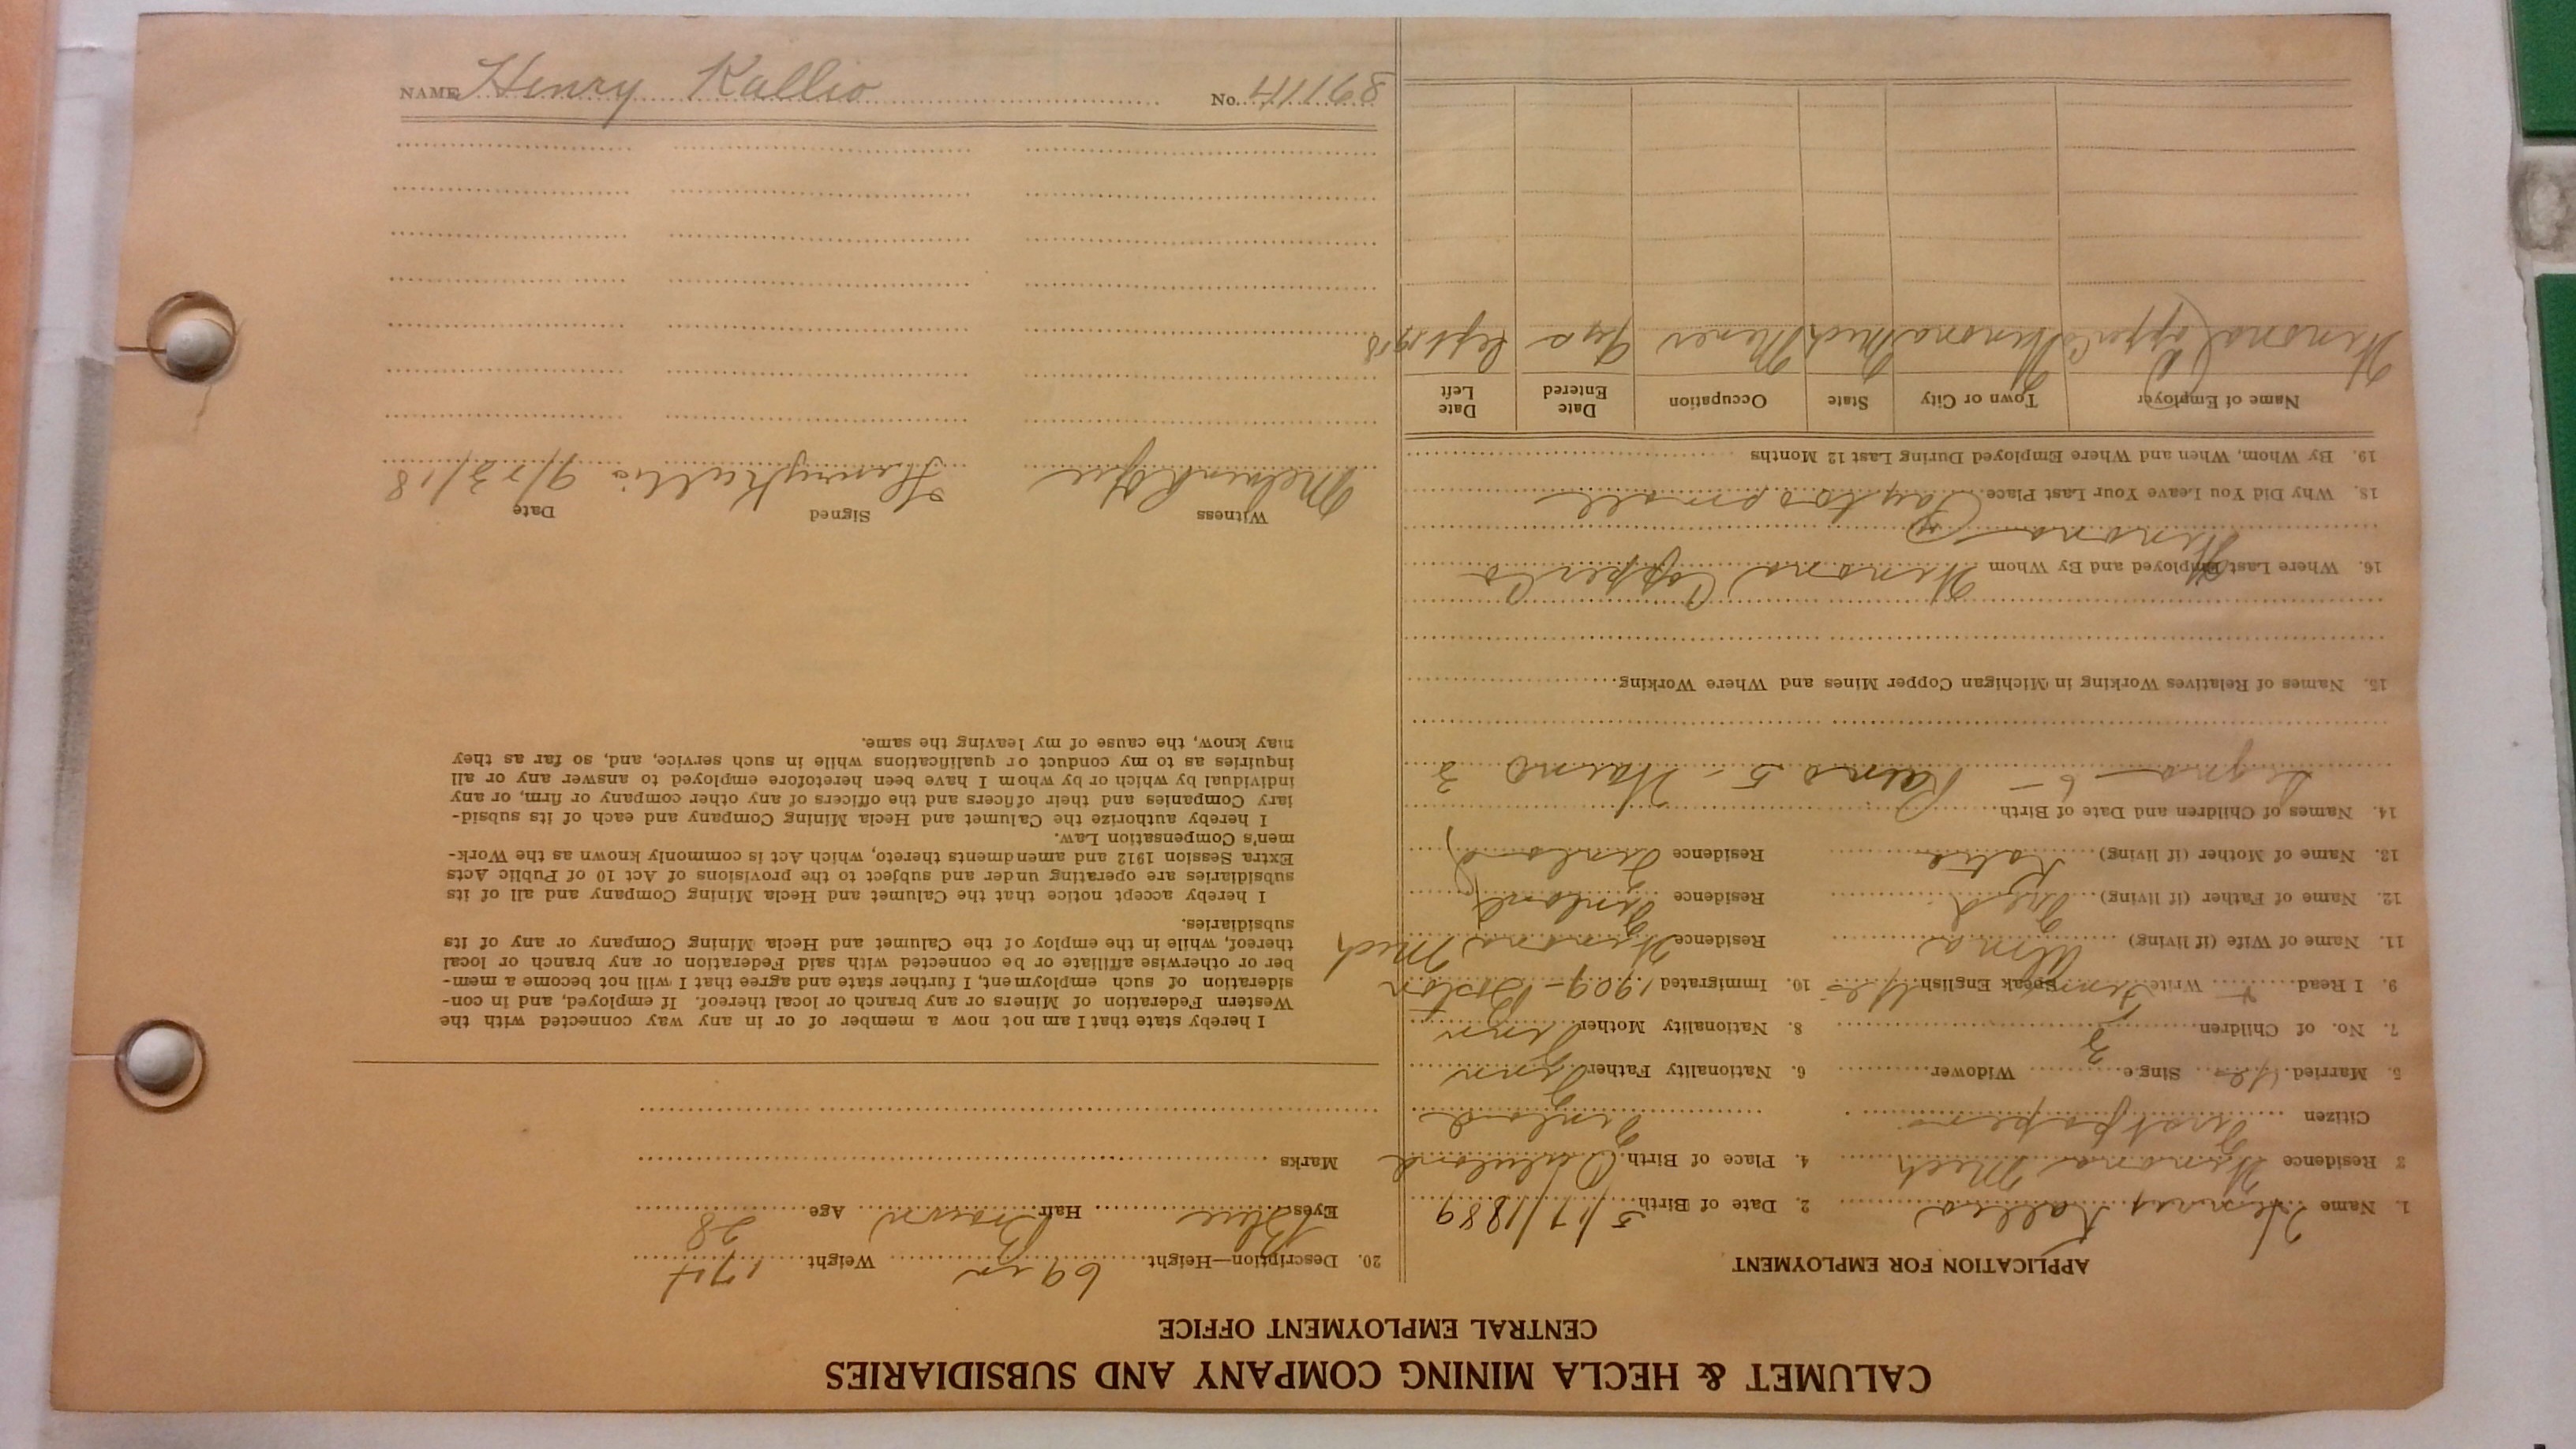 CALUMET & HECLA MINING COMPANY AND SUBSIDIARIES
CENTRAL EMPLOYMENT OFFICE
APPLICATION FOR EMPLOYMENT
1. Name Henry Kallio 2. Date of Birth 5/17/1889
3 Residence Winona Mich 4. Place of Birth
Citizen First papers Finland
5. Married Yes Single Widower 6. Nationality Father Finn
7. No. of Children 3 8. Nationality Mother Finn
9. I Read Write Finn Speak English Yes 10. Immigrated 1909 - Boston
11. Name of Wife (if living) Alma Residence Winona Mich
12. Name of Father (if living) Fred Residence Finland
13. Name of Mother (if living) Katie Residence Finland
14. Names of Children and Date of Birth
6 - 5 - Waino 3
15. Names of Relatives Working in Michigan Copper Mines and Where Working
16. Where Last Employed and By Whom Winona Copper Co
Winona
18. Why Did You Leave Your Last Place Pay too small
19. By Whom, When and Where Employed During Last 12 Months
Name of Employer Town or City State Occupation Date Entered Date Left
Winona Copper Co Winona Mich Miner Sept 1918
20. Description—Height 69 in Weight 174
Eyes Blue Hair Brown Age 28
Marks
I hereby state that I am not now a member of or in any way connected with the
Western Federation of Miners or any branch or local thereof. If employed, and in con-
sideration of such employment, I further state and agree that I will not become a mem-
ber or otherwise affiliate or be connected with said Federation or any branch or local
thereof, while in the employ of the Calumet and Hecla Mining Company or any of its
subsidiaries.
I hereby accept notice that the Calumet and Hecla Mining Company and all of its
subsidiaries are operating under and subject to the provisions of Act 10 of Public Acts
Extra Session 1912 and amendments thereto, which Act is commonly known as the Work-
men's Compensation Law.
I hereby authorize the Calumet and Hecla Mining Company and each of its subsid-
iary Companies and their officers and the officers of any other company or firm, or any
individual by which or by whom I have been heretofore employed to answer any or all
inquiries as to my conduct or qualifications while in such service, and, so far as they
may know, the cause of my leaving the same.
Witness Signed Date
Henry Kallio 9/23/18
NAME Henry Kallio No.